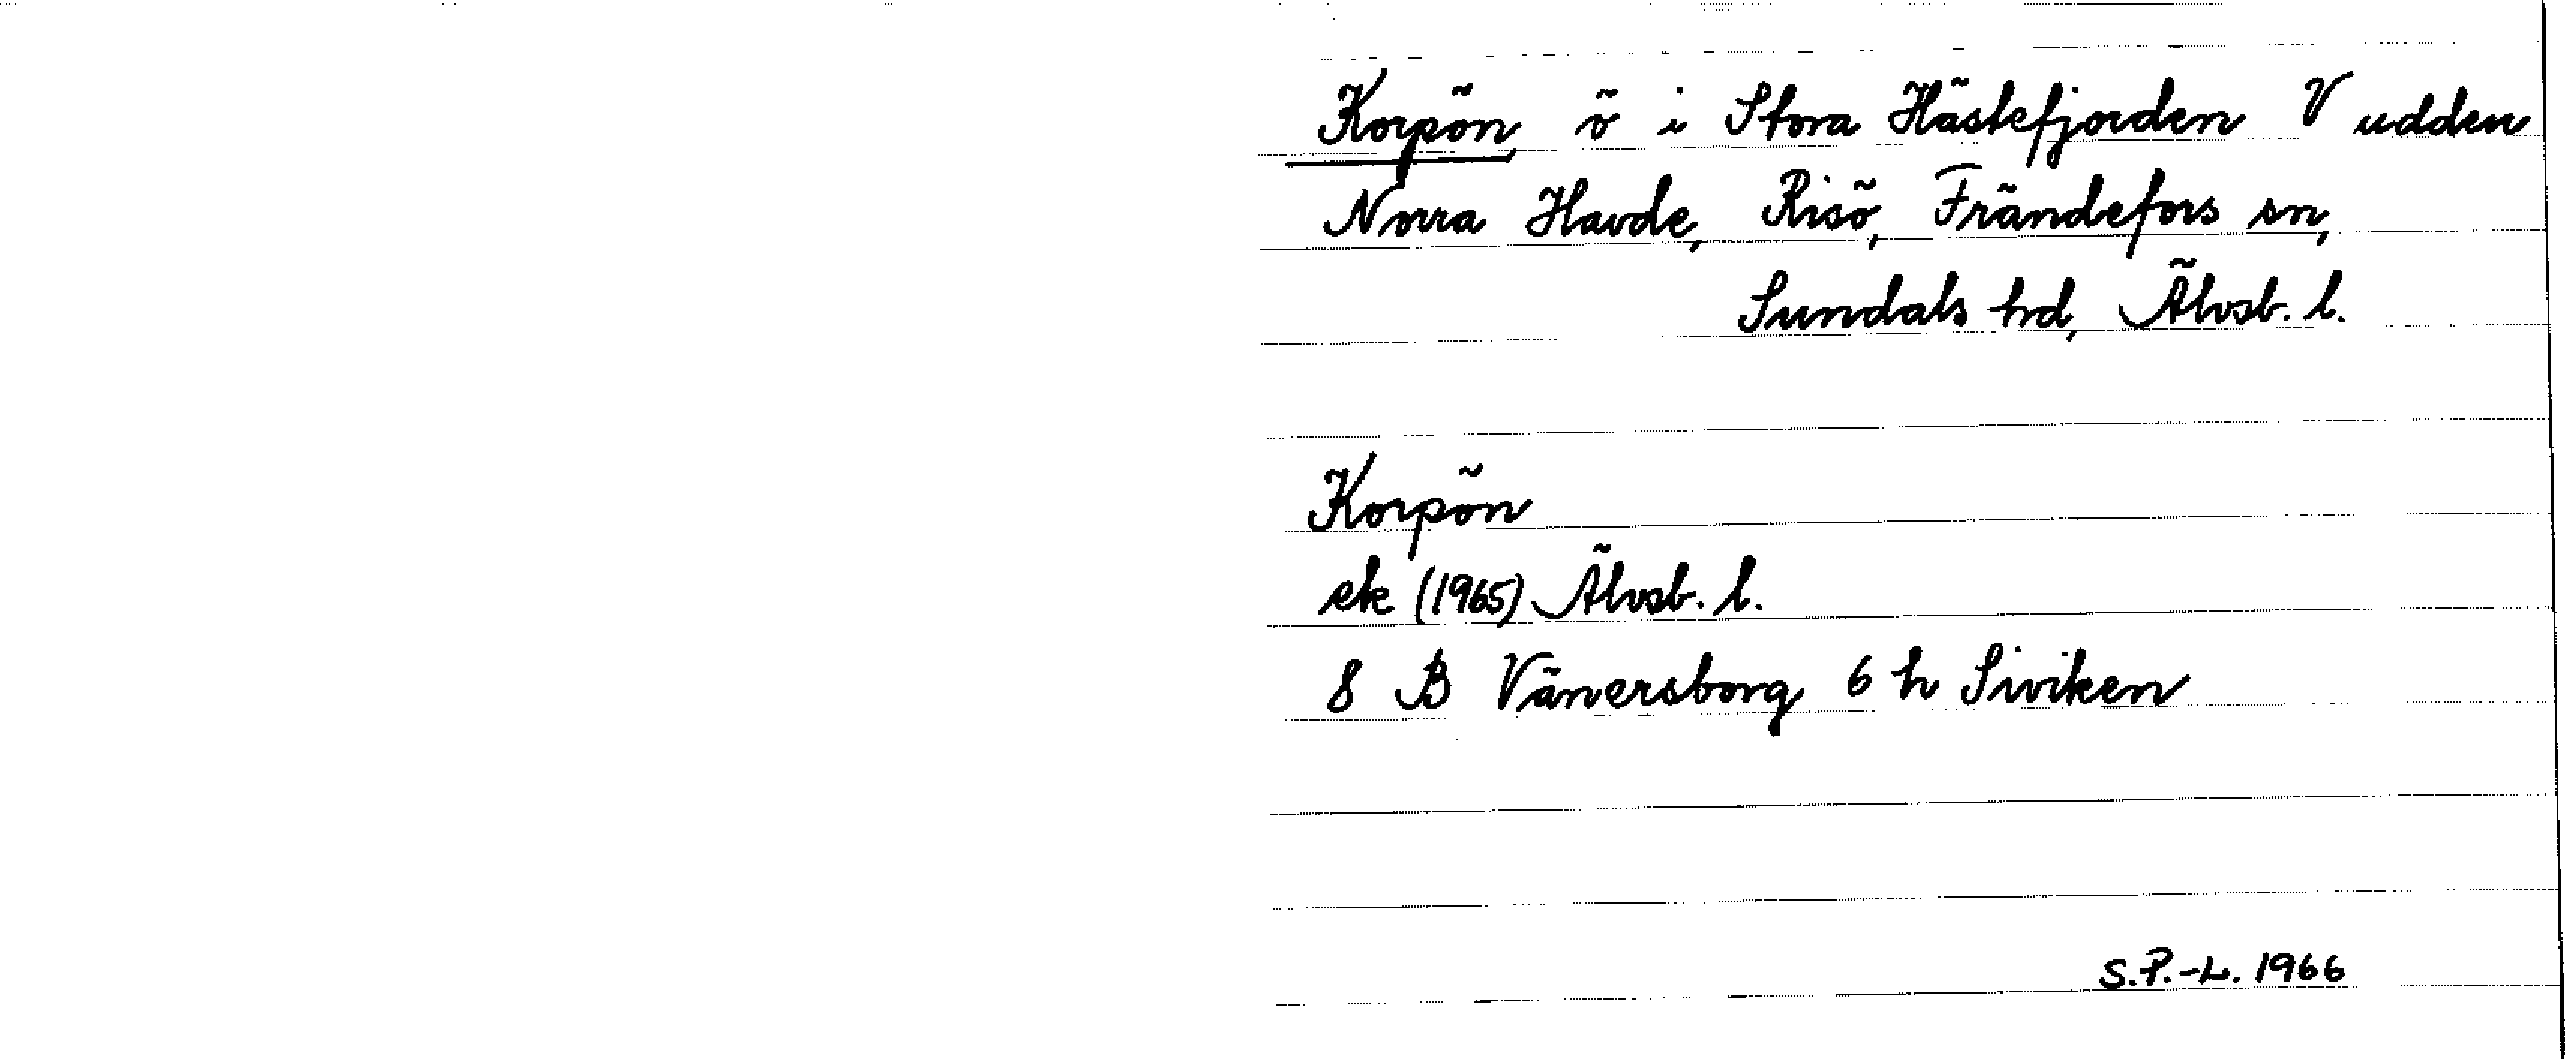 Korpön, ö i Stora Hästefjorden V udden
Norra Havde, Risö, Frändefors sn,
Sundals hd, Älvsb. l.
Korpön
ek (1965) Älvsb. l.
8 B Vänersborg 6 h Siviken
S.P.-L. 1966